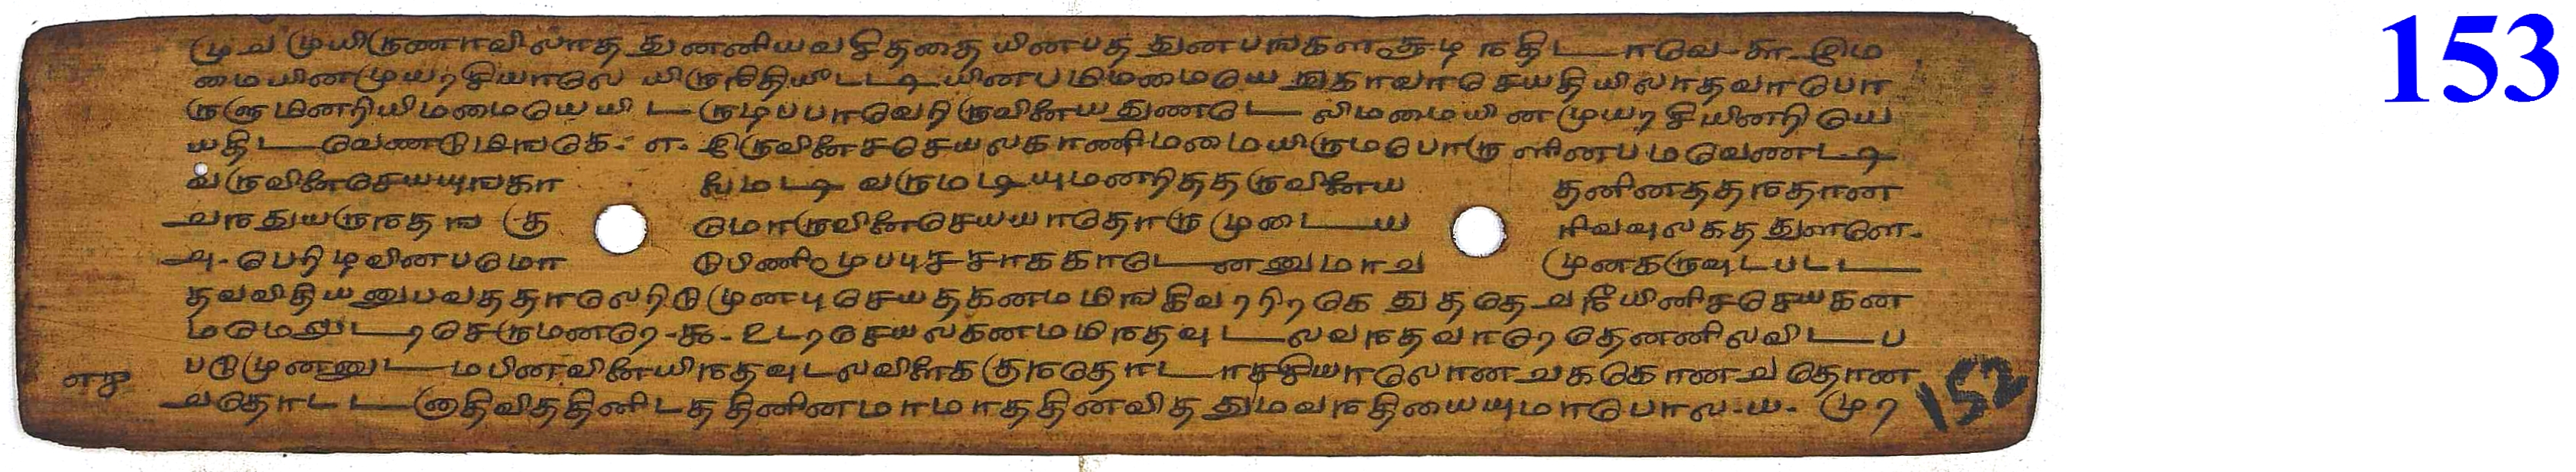 153
முட முயிருணாவிலாத துனனியவசிதததை யினபத துனபஙகளகூடி நதிடாவெ-சு-இமெ
மையினமுயரசியாலெ யிருநிதியீடடியினபமிமமையெ நுகாவாசெயதியிலாதவாபொ
ருளுமினறியிமமையெயிடருழபபாவெரிருவினையதுணடெ லிமமையினமுயரசியினறியெ
யதிடவெணடுமிஙகெ- எ- இருவினைசசெயலகாணிமமையிருமபொரு ளினபமவெணடி
வருவினைசெயயுஙகா லெமடடி வருமடியுமனறிததருவினைய தனினததநதான
வநதுயருநதஙகு மொருவினைசெயயாதொரு முடைய ரிவவுலகததுளளெ-
அ-பெறிழவினபமொ டுபிணிமூபபுசசாககாடெனனுமாவ முனகருவுடபடட
தவவிதியனுபவததாலெறிடுமுனபுசெயதகனமமிஙகிவரரிரகெ துததெவநீயினிசசெயகன
மமெலுடரசெருமணரெ-கூ-உடரசெயலகனமமிநதவுடலவநதவாரெதெனனிலவிடப
படுமுனனுடமபினவினையிநதவுடலவிளைககுநதொடராசசியாலொனவககொனவதொன
எசு
வதொடடஅதிவிததினிடததினினமாமாததினவிததுமவநதியையுமாபொல-ய- முர
152